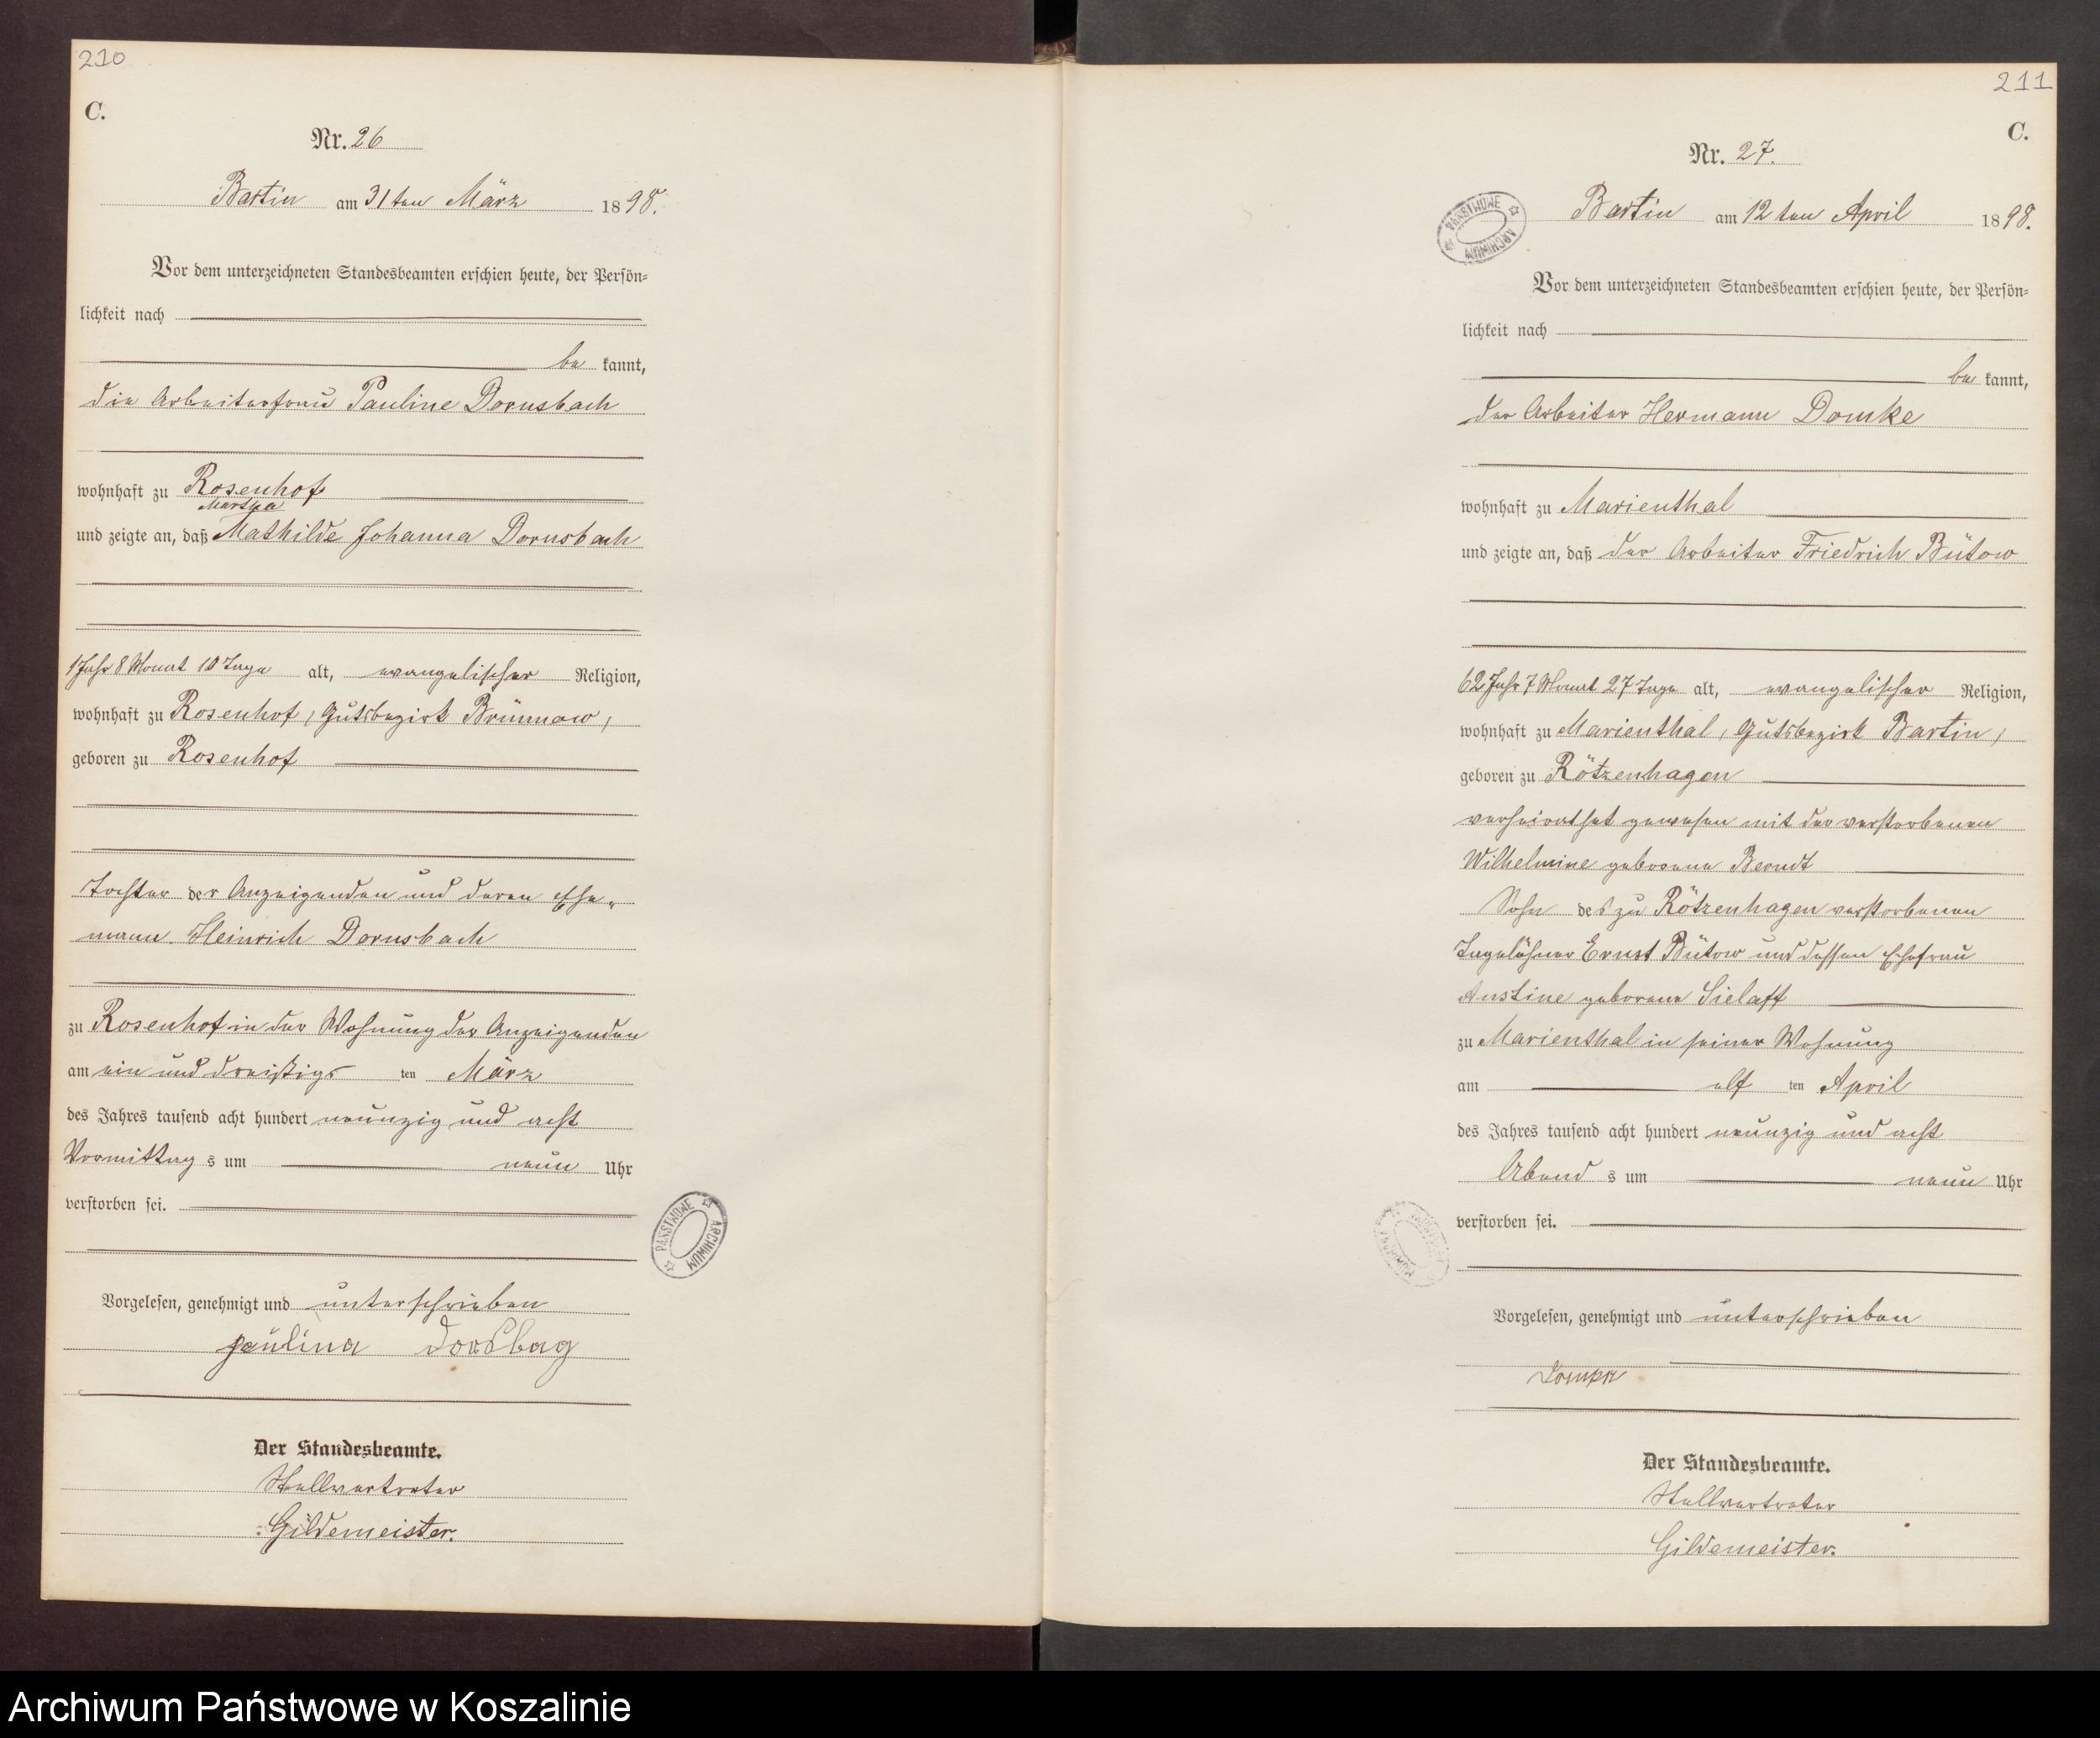 210
C.
Nr. 26
Bartin am 31ten März 1898.
Vor dem unterzeichneten Standesbeamten erschien heute, der Persön-
lichkeit nach
be kannt,
die Arbeiterfrau Pauline Dornsbach
wohnhaft zu Rosenhof
Martha
und zeigte an, daß Mathilde Johanna Dornsbach
1 Jahr 8 Monat 10 Tage alt, evangelischer Religion,
wohnhaft zu Rosenhof, Gutsbezirk Brünnow,
geboren zu Rosenhof
Tochter der Anzeigenden und deren Ehe-
mann Heinrich Dornsbach
zu Rosenhof in der Wohnung der Anzeigenden
am ein und dreißigs ten März
des Jahres tausend acht hundert neunzig und acht
Vormittag s um neun Uhr
verstorben sei.
Vorgelesen, genehmigt und unterschrieben
paulina
Der Standesbeamte.
Stellvertreter
Gildemeister.
PAŃSTWOWE ARCHIWUM
211
C.
Nr. 27.
PAŃSTWOWE ARCHIWUM
Bartin am 12ten April 1898.
Vor dem unterzeichneten Standesbeamten erschien heute, der Persön-
lichkeit nach
be kannt,
der Arbeiter Hermann Domke
wohnhaft zu Marienthal
und zeigte an, daß der Arbeiter Friedrich Bütow
62 Jahr 7 Monat 27 Tage alt, evangelischer Religion,
wohnhaft zu Marienthal, Gutsbezirk Bartin,
geboren zu Rötzenhagen
verheirathet gewesen mit der verstorbenen
Wilhelmine geborene Berndt
Sohn des zu Rötzenhagen verstorbenen
Tagelöhner Ernst Bütow und dessen Ehefrau
geborene Sielaff
zu Marienthal in seiner Wohnung
am elf ten April
des Jahres tausend acht hundert neunzig und acht
Abend s um neun Uhr
verstorben sei.
Vorgelesen, genehmigt und unterschrieben
Der Standesbeamte.
Stellvertreter
Gildemeister.
Archiwum Państwowe w Koszalinie